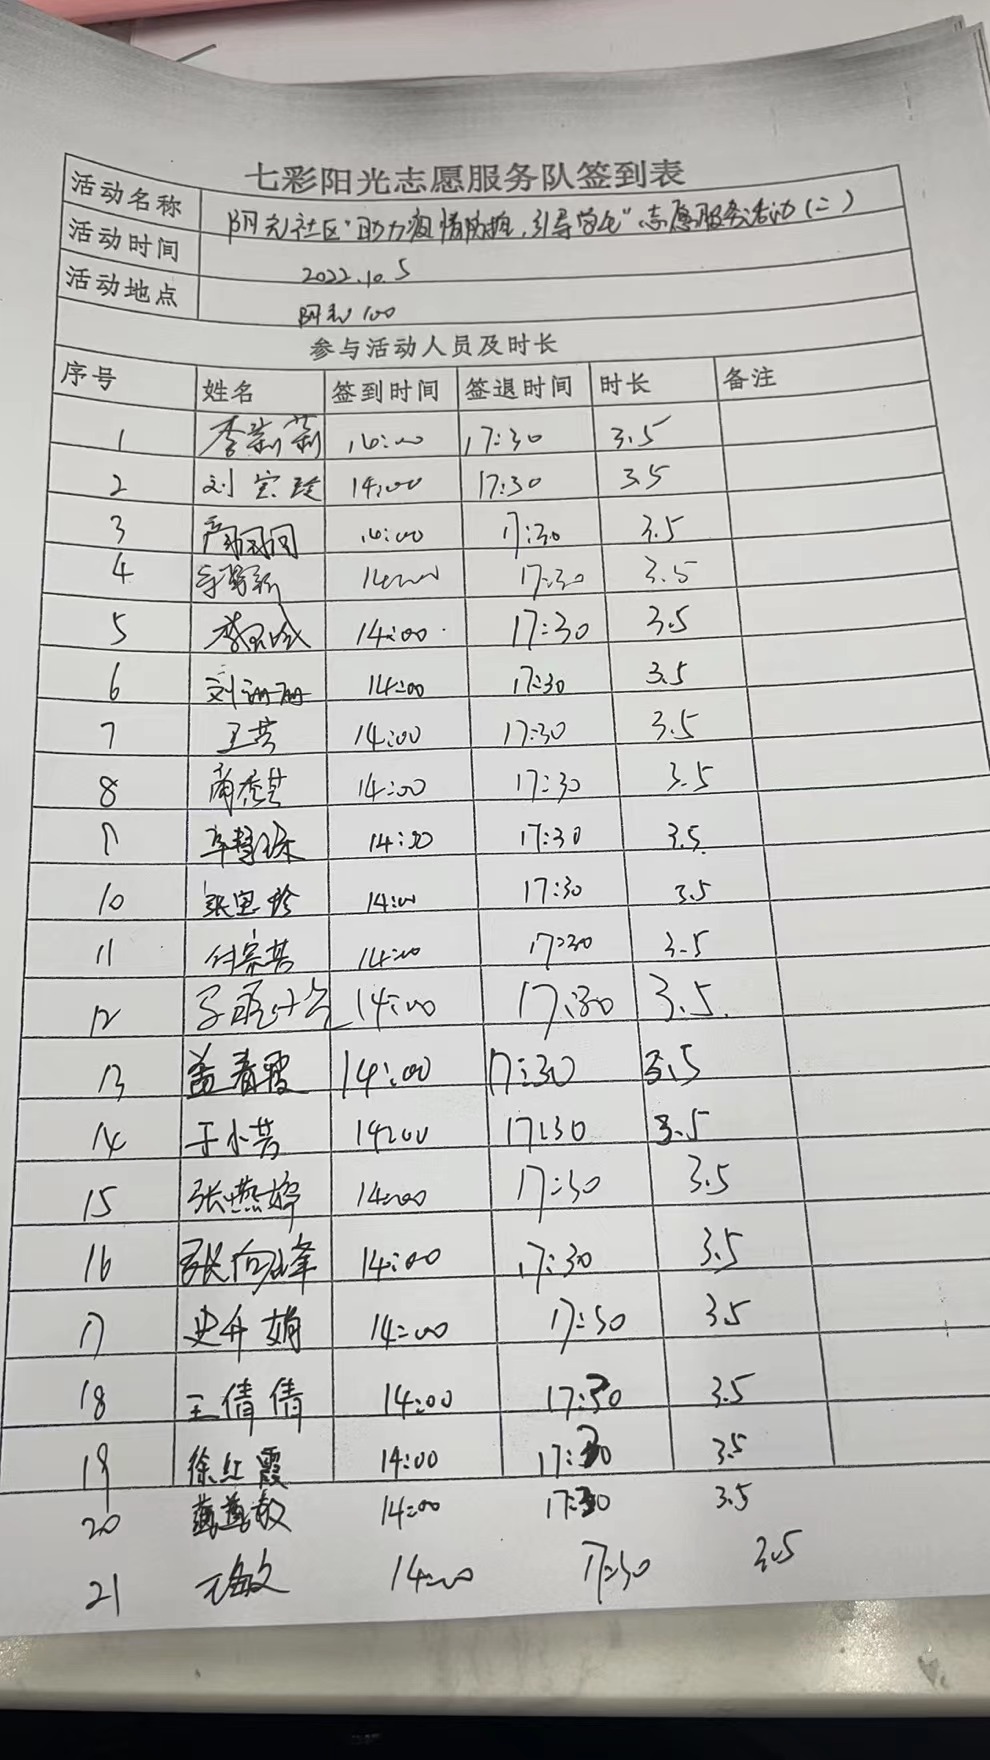 七彩阳光志愿服务队签到表
活动名称 社区"助力疫情防控,引导学生"志愿服务活动(二)
活动时间 2022.10.5
活动地点 100
参与活动人员及时长
序号 姓名 签到时间 签退时间 时长 备注
1 李莉莉 14:00 17:30 3.5
2 刘宝玲 14:00 17:30 3.5
3 14:00 17:30 3.5
4 14:00 17:30 3.5
5 14:00 17:30 3.5
6 刘 14:00 17:30 3.5
7 王芳 14:00 17:30 3.5
8 14:00 17:30 3.5
9 14:30 17:30 3.5
10 张宝珍 14:00 17:30 3.5
11 付 14:00 17:30 3.5
12 14:00 17:30 3.5
13 盖春霞 14:00 17:30 3.5
14 于小芳 14:00 17:30 3.5
15 张燕婷 14:00 17:30 3.5
16 张向峰 14:00 17:30 3.5
17 史升娟 14:00 17:30 3.5
18 王倩倩 14:00 17:30 3.5
19 徐红霞 14:00 17:30 3.5
20 14:00 17:30 3.5
21 敏 14:00 17:30 3.5